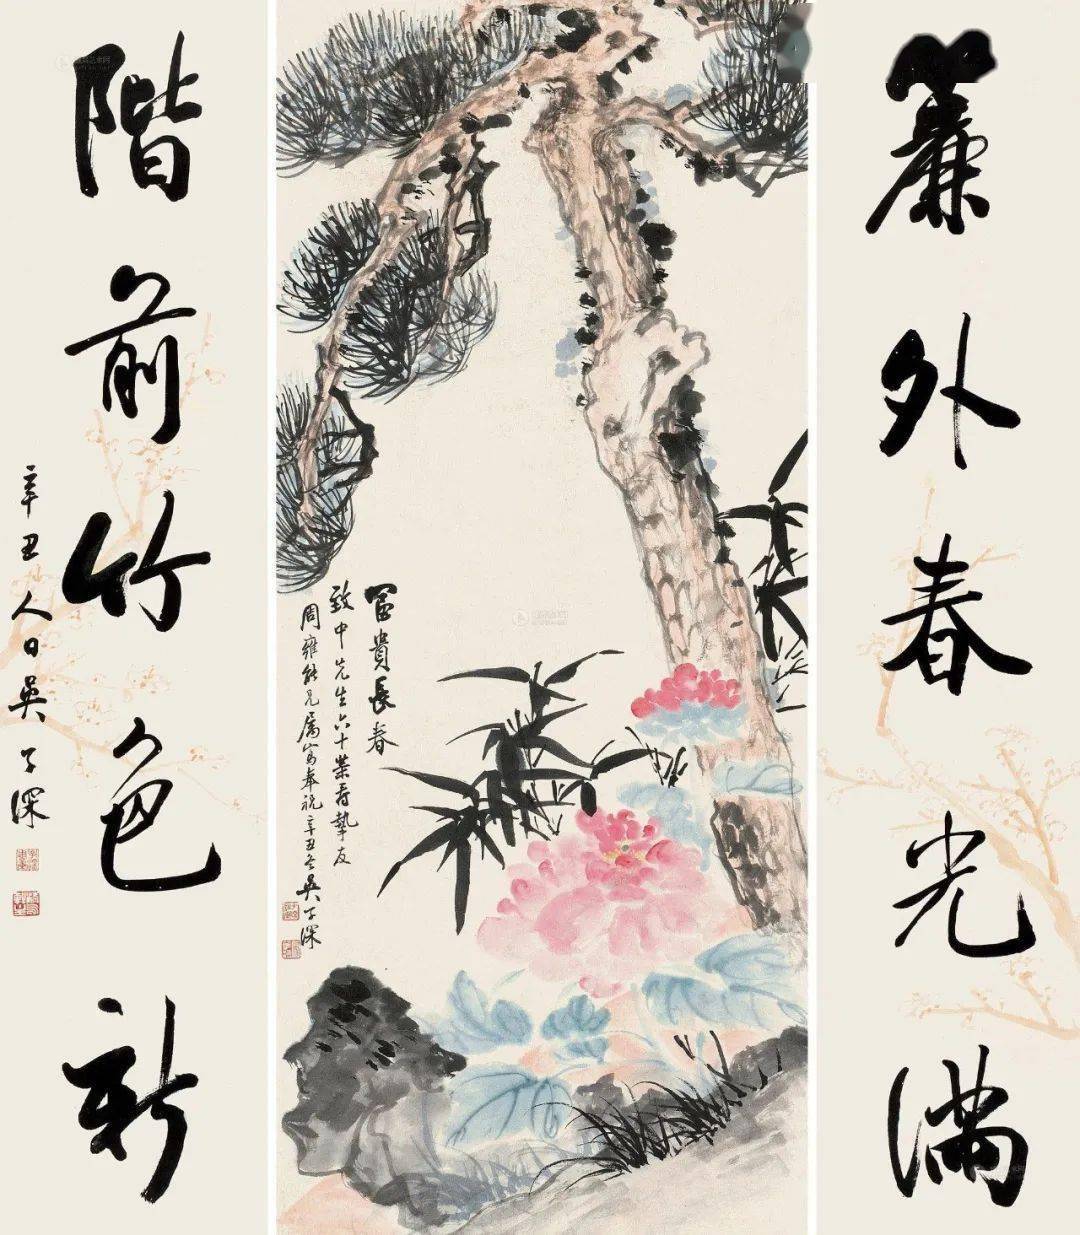 簾外春光滿
富貴長春
致中先生六十榮壽摯友
周雍能兄屬寫奉祝辛丑冬吳子深
階前竹色新
辛丑人日吳子深